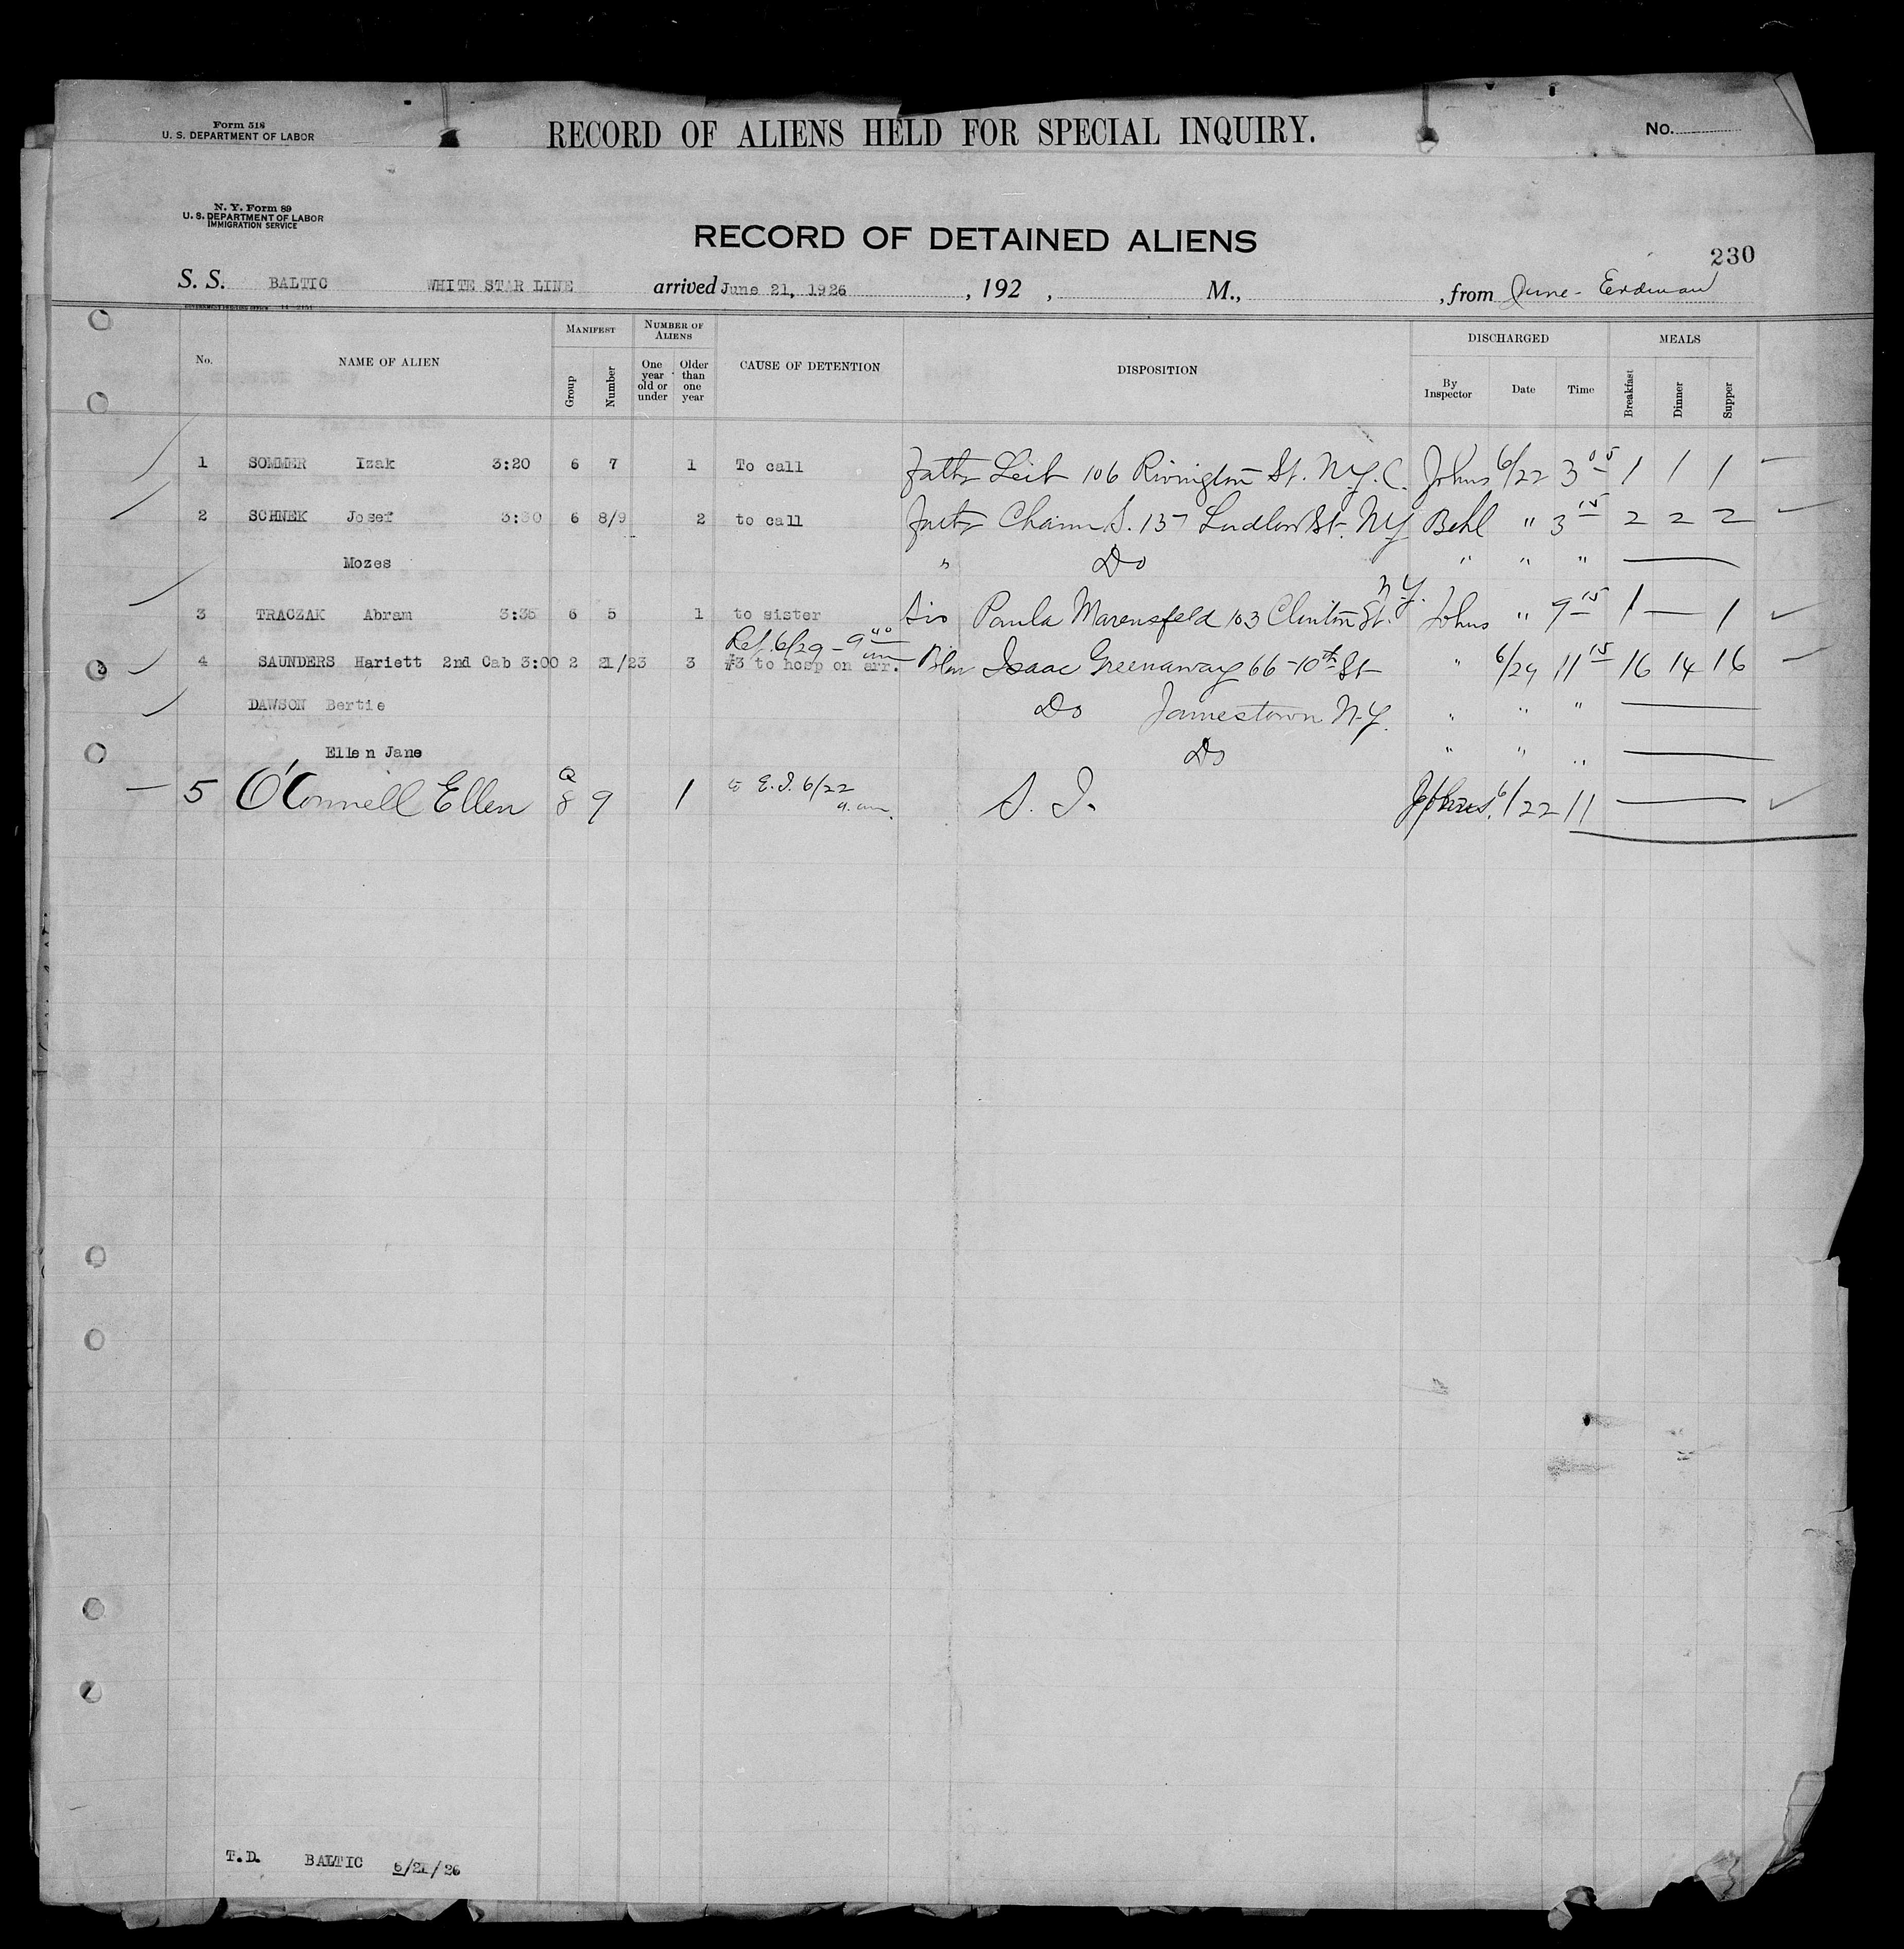 Form 518
U. S. DEPARTMENT OF LABOR
RECORD OF ALIENS HELD FOR SPECIAL INQUIRY.
No.
N. Y. Form 89
U. S. DEPARTMENT OF LABOR
IMMIGRATION SERVICE
RECORD OF DETAINED ALIENS
230
S. S. BALTIC WHITE STAR LINE arrived June 21, 1926 , 192 , M., , from June - Erdman
No. NAME OF ALIEN MANIFEST Group Number NUMBER OF ALIENS One year old or under Older than one year CAUSE OF DETENTION DISPOSITION DISCHARGED By Inspector Date Time MEALS Breakfast Dinner Supper
1 SOMMER Izak 3:20 6 7 1 To call Fathr Leib 106 Rivington St. N.Y.C. Johns 6/22 3 05 1 1 1
2 SCHNEK Josef 3:30 6 8/9 2 to call Chaim S. 157 Ludlow St. NY Behl " 3 15 2 2 2
Mozes " Do " " "
3 TRACZAK Abram 3:35 6 5 1 to sister Sis Paula Marensfeld 103 Clinton St. N.Y. Johns " 9 15 1 — 1
Ref. 6/29 - 9 40 am
4 SAUNDERS Hariett 2nd Cab 3:00 2 21/23 3 #3 to hosp on arr. Isaac Greenaway 66-10th St " 6/29 11 15 16 14 16
DAWSON Bertie Do Jamestown N.Y. " " "
Ellen Jane Do " " "
5 O'Connell Ellen Q 8 9 1 E.I. 6/22 a.m. S. I. 6/22 11
T.D. BALTIC 6/21/26